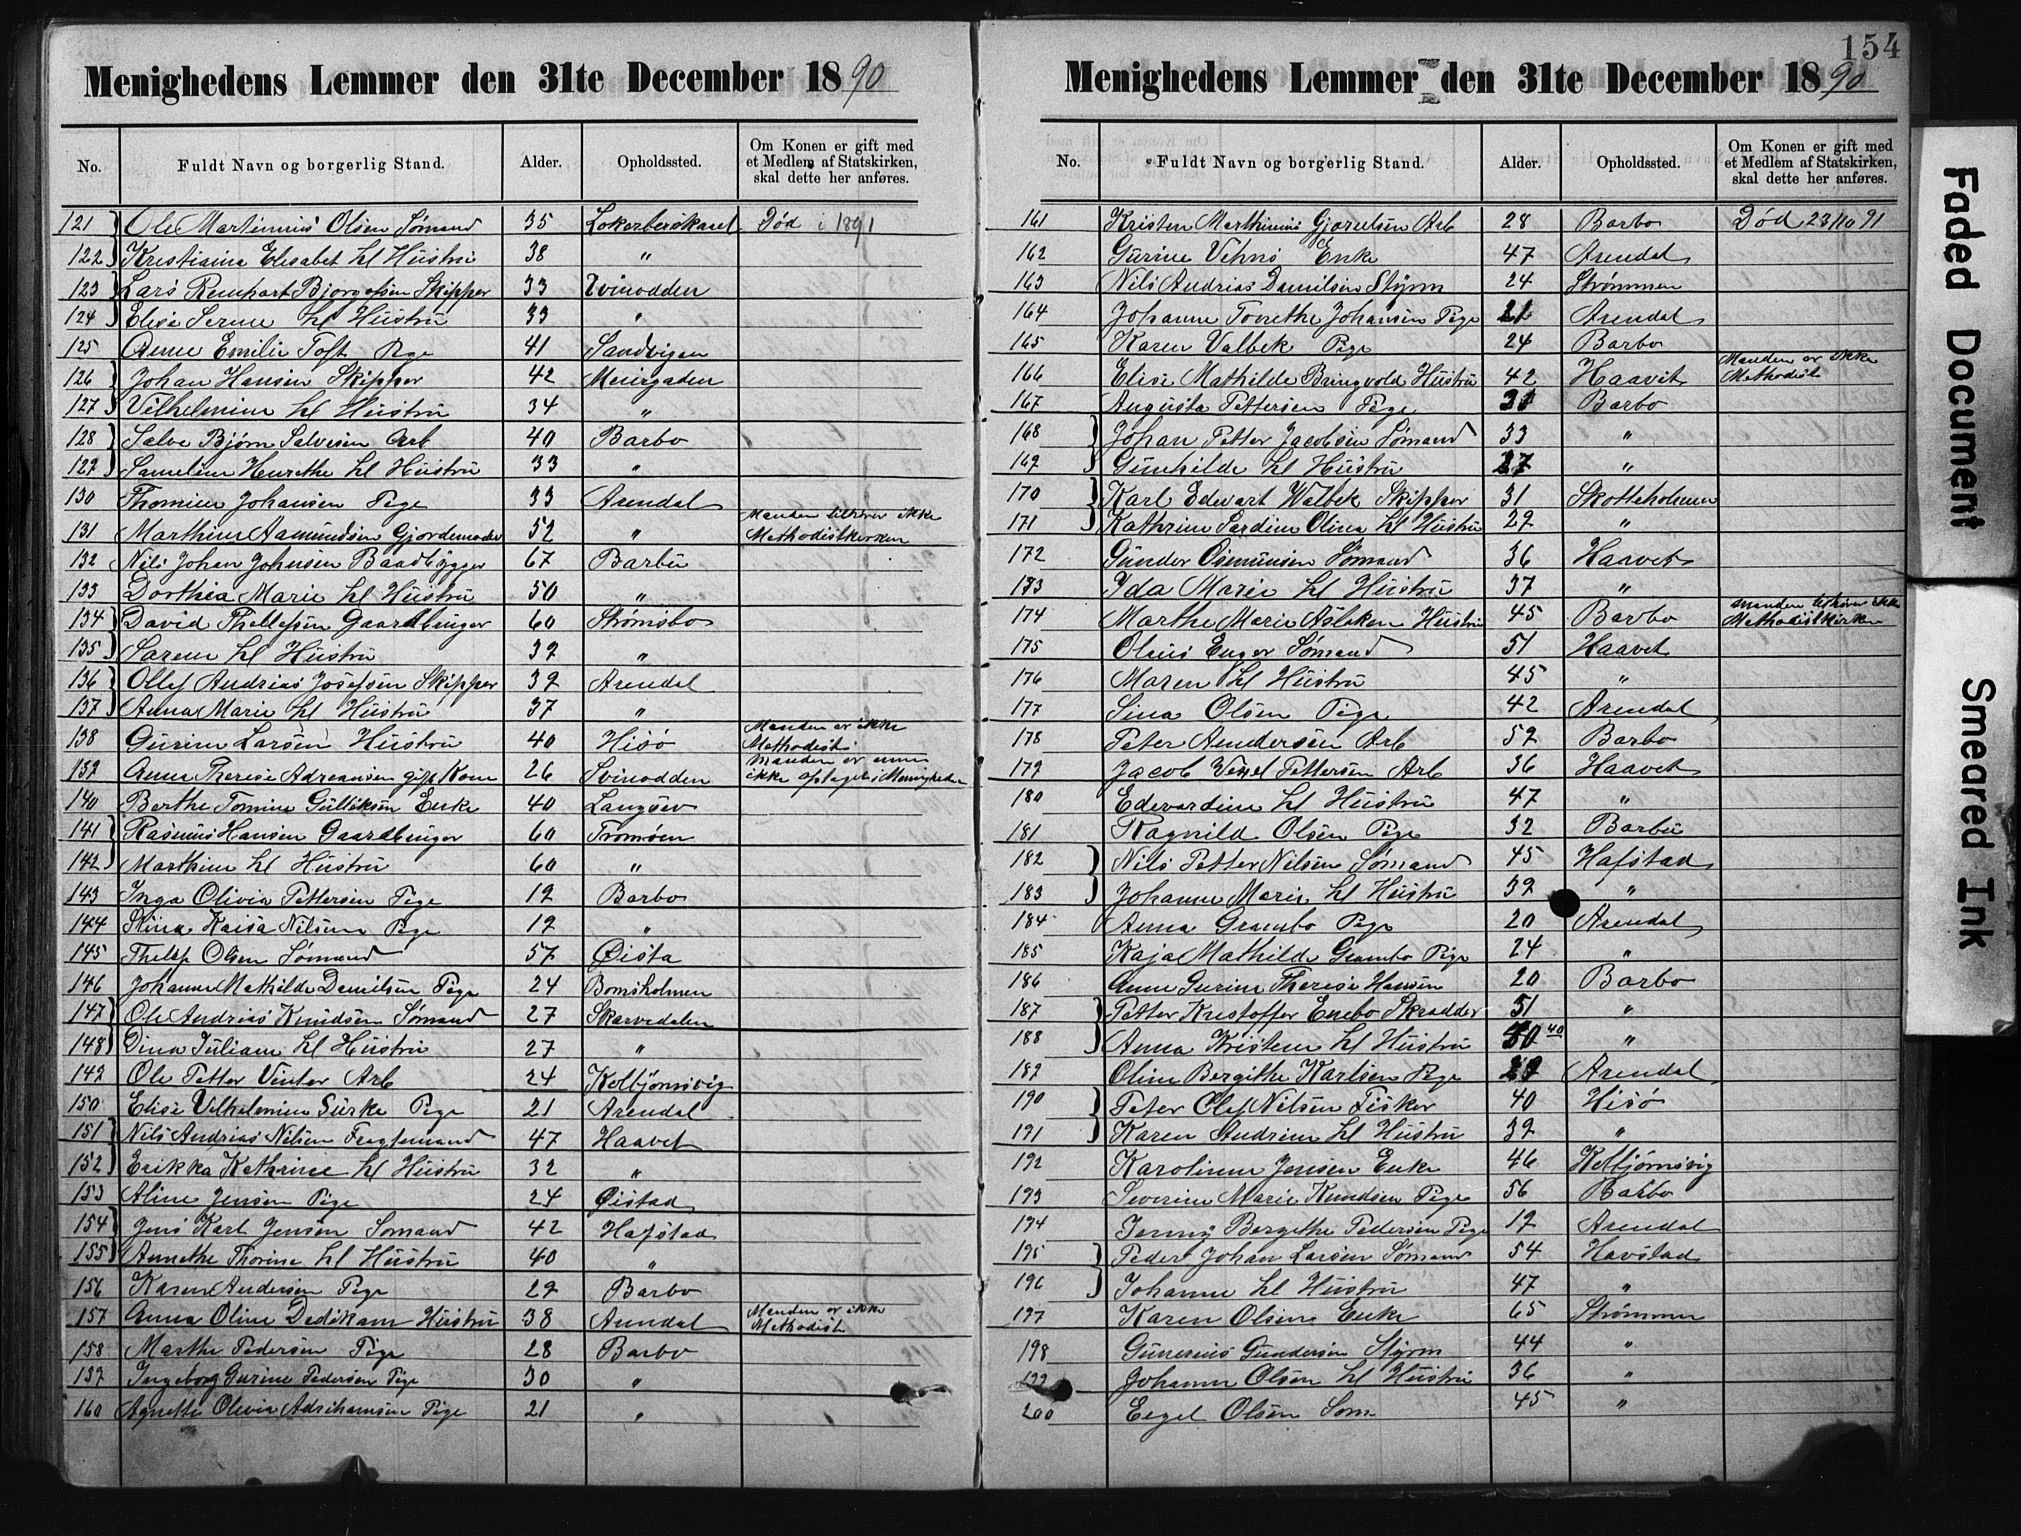 154
Menighedens Lemmer den 31te December 1890
No. Fuldt Navn og borgerlig Stand. Alder. Opholdssted. Om Konen er gift med et Medlem af Statskirken, skal dette her anføres.
121 Ole Martinius Olsen Sømand 35 Død i 1891
122 Kristiaina Elisabet hl Hüstrü 38 "
123 Lars Reinhart Bjorgofsen Skipper 33 Svinodden
124 Elise Serine hl Hüstrü 33 "
125 Anne Emilie Toft Pige 41 Sandvigen
126 Johan Hansen Skipper 42 Meiergaden
127 Vilhelmine hl Hüstrü 34 "
128 Salve Bjørn Salvesen Arb 40 Barbo
129 Henrethe hl Hüstrü 33 "
130 Thomine Johansen Pige 33 Arendal
131 Marthine Aamundsen Gjordemoder 52 " Manden tilhører ikke Methodistkirken
132 Nils Johan Johnsen Baadbygger 67 Barbü
133 Dorthea Marie hl Hüstrü 50 "
134 David Thellefsen Gaardbruger 60 Strømsbo
135 Sarene hl Hüstrü 39 "
136 Ollef Andrias Josefsen Skipper 39 Arendal
137 Anna Marie hl Hüstrü 37 "
138 Gurine Larsen Hüstrü 40 Hisø Manden er ikke Methodist
139 Anna Therese Adreansen gift Kone 26 Svinodden Manden er ennu ikke optaget i Menigheden
140 Berthe Tomine Gülleksen Enke 40 Langsev
141 Rasmus Hansen Gaardbruger 60 Tromøen
142 Marthine hl Hüstrü 60 "
143 Inga Olivia Pettersen Pige 19 Barbo
144 Stina Kaisa Nilsen Pige 19 "
145 Olsen Sømand 57 Øista
146 Johanne Mathilde Danielsen Pige 24 Bomsholmen
147 Ole Andrias Knudsen Sømand 27 Skarvedalen
148 Dina Juliane hl Hüstrü 27 "
149 Ole Petter Venter Arb 24 Kolbjørnsvig
150 Elise Vilhelmine Surke Pige 21 Arendal
151 Nils Andrias Nilsen Fragtemand 47 Haavet
152 Erikka Kathrine hl Hüstrü 32 "
153 Aline Jensen Pige 24 Øistad
154 Jens Karl Jensen Sømand 42 Hafstad
155 Annethe Thorine hl Hüstrü 40 "
156 Karen Andersen Pige 29 Barbo
157 Anna Oline Dedikam Hüstrü 38 Arendal Manden er ikke Methodist
158 Marthe Pedersen Pige 28 Barbo
159 Ingeborg Gurine Pedersen Pige 30 "
160 Agnethe Olivia Adrihansen Pige 21 "
Menighedens Lemmer den 31te December 1890
No. Fuldt Navn og borgerlig Stand. Alder. Opholdssted. Om Konen er gift med et Medlem af Statskirken, skal dette her anføres.
161 Kristen Marthinius Gjorulsen Arb 28 Barbo Død 23/10 91
162 Gurine Vehns Enke 47 Arendal
163 Nils Andrias Danilsen Styrm 24 Strømmen
164 Johanne Tonethe Johansen Pige 21 Arendal
165 Karen Valbek Pige 24 Barbo
166 Elise Mathilde Bringvold Hüstrü 42 Haavet Manden er ikke Methodist
167 Augusta Pettersen Pige Barbo
168 Johan Petter Jacobsen Sømand 33 "
169 Gunhilde hl Hüstrü "
170 Karl Edevart Walbek Skipper 31 Skotteholmen
171 Kathrine Sardine Olina hl Hüstrü 29 "
172 Gunder Osmunsen Sømand 36 Haavet
183 Ida Marie hl Hüstrü 37 "
174 Marthe Marie Aslaksen Hüstrü 45 Barbo Manden tilhører ikke Methodistkirken
175 Olaus Enger Sømand 51 Haavet
176 Maren hl Hüstrü 45 "
177 Sina Olsen Pige 42 Arendal
178 Peter Aundersen Arb 59 Barbo
179 Jacob Vessel Pettersen Arb 36 Haavet
180 Edevardine hl Hüstrü 47 "
181 Ragnild Olsen Pige 32 Barbü
182 Nils Petter Nilsen Sømand 45 Hafstad
183 Johanne Marie hl Hüstrü 39 "
184 Anna Grambo Pige 20 Arendal
185 Kaja Mathilde Grambo Pige 24 "
186 Anne Gurine Therese Hansen 20 Barbo
187 Petter Kristoffer Enebo Skradder 51 "
188 Anna Kristene hl Hüstrü 40 "
189 Oline Bergithe Karlsen Pige Arendal
190 Peter Olef Nilsen Fisker 40 Hisø
191 Karen Andrine hl Hüstrü 39 "
192 Karolinne Jensen Enke 46 Kolbjørnsvig
193 Severine Marie Knudsen Pige 56 Barbo
194 Jenny Bergethe Pedersen Pige 19 Arendal
195 Peder Johan Larsen Sømand 54 Havstad
196 Johanne hl Hüstrü 47 "
197 Karen Olsen Enke 65 Strømmen
198 Gunerius Gundersen Styrm 44 "
199 Johanne Olsen hl Hüstrü 36 "
200 Eigel Olsen Søm 45 "
Faded Document
Smeared Ink